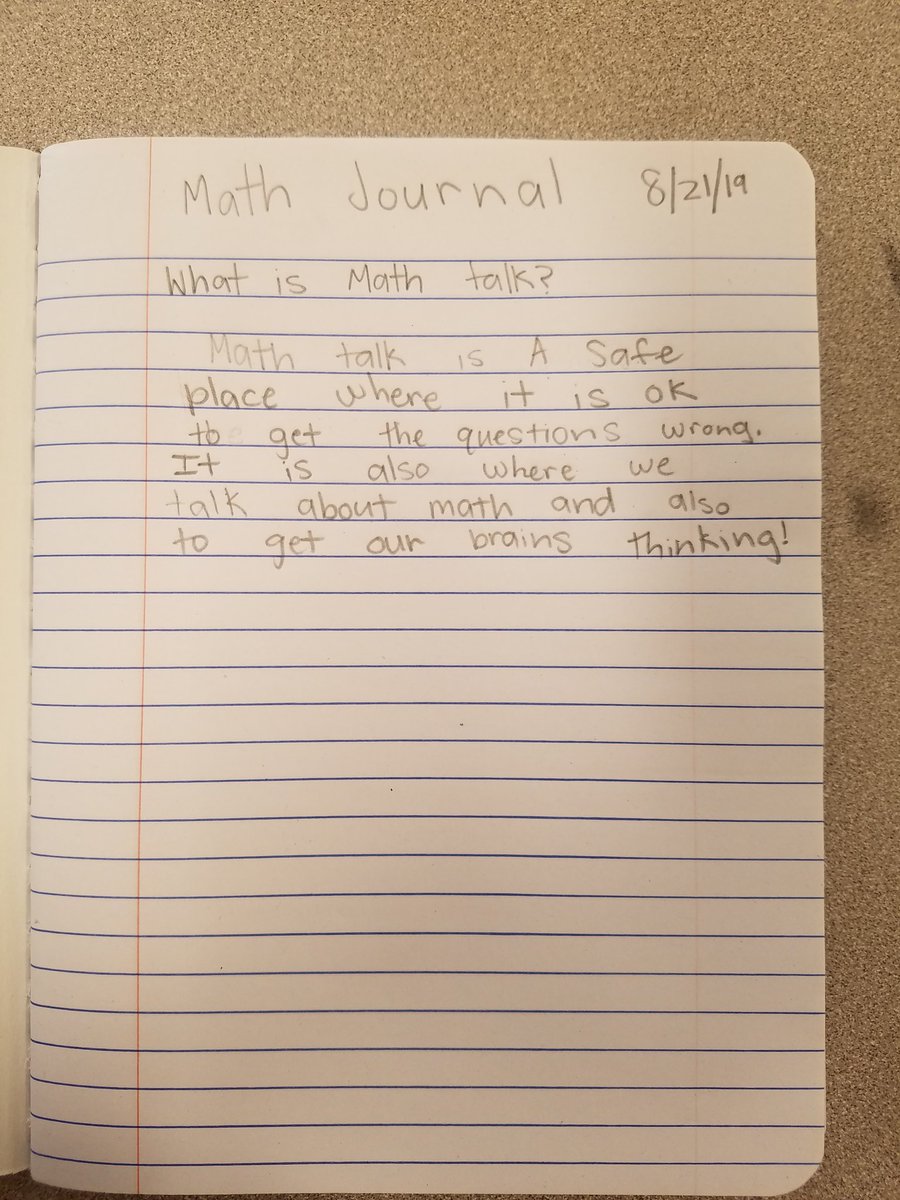 Math Journal 8/21/19
What is Math talk?
Math talk is A Safe
place where it is ok
to get the questions wrong.
It is also where we
talk about math and also
to get our brains thinking!